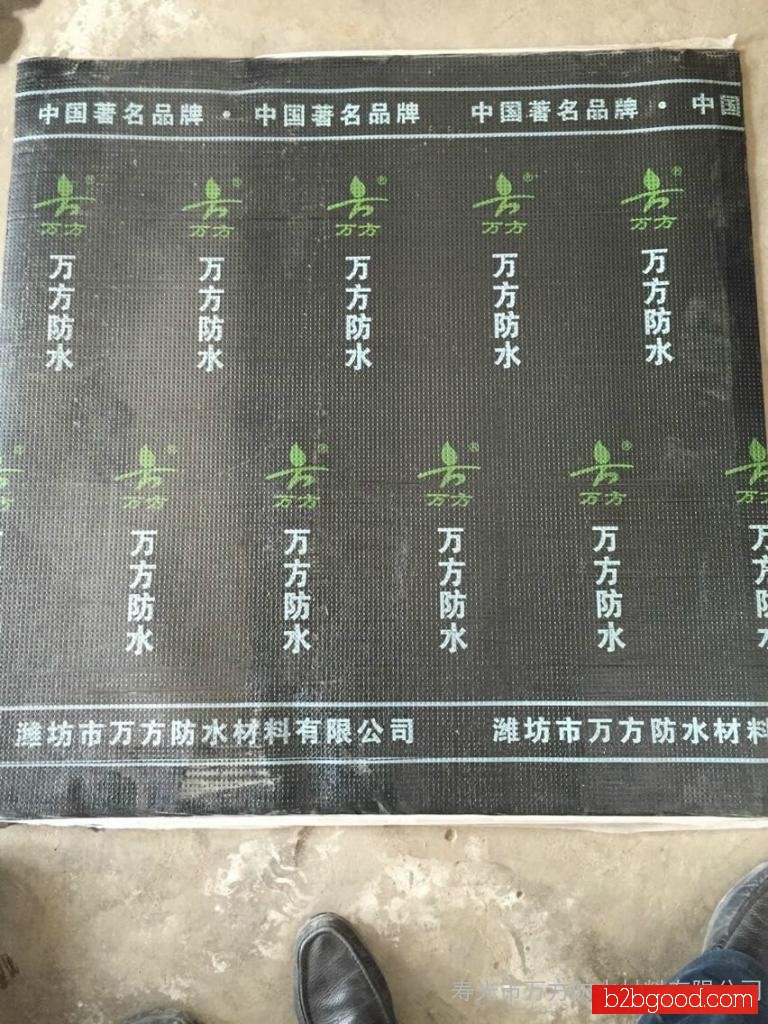 中国著名品牌 · 中国著名品牌 中国著名品牌 · 中国
® ® ® ® ®
万方 万方 万方 万方 万方
万方防水 万方防水 万方防水 万方防水 万方防水
® ® ® ®
万方 万方 万方 万方 万方
万方防水 万方防水 万方防水 万方防水
潍坊市万方防水材料有限公司 潍坊市万方防水材料
寿光市万方防水材料有限公司
b2bgood.com